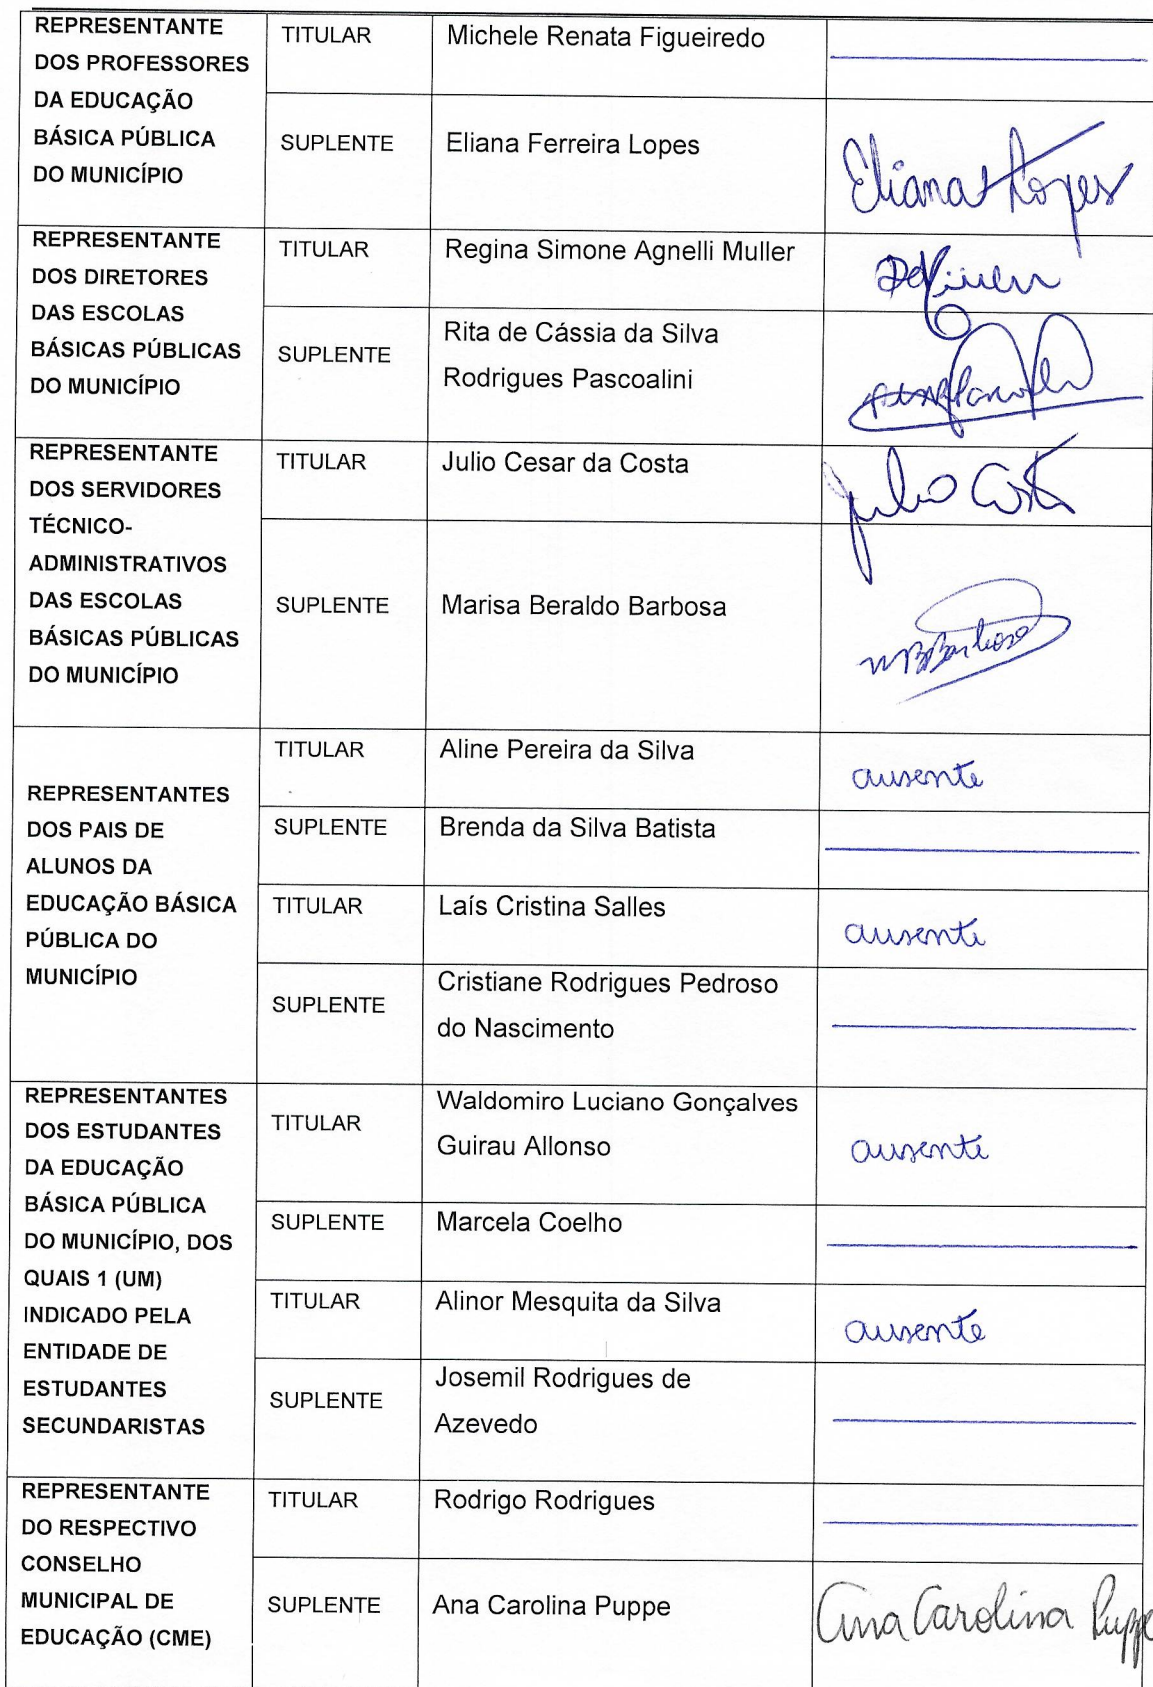 REPRESENTANTE
DOS PROFESSORES
DA EDUCAÇÃO
BÁSICA PÚBLICA
DO MUNICÍPIO
TITULAR
Michele Renata Figueiredo
SUPLENTE
Eliana Ferreira Lopes
Eliana Lopes
REPRESENTANTE
DOS DIRETORES
DAS ESCOLAS
BÁSICAS PÚBLICAS
DO MUNICÍPIO
TITULAR
Regina Simone Agnelli Muller
SUPLENTE
Rita de Cássia da Silva
Rodrigues Pascoalini
REPRESENTANTE
DOS SERVIDORES
TÉCNICO-
ADMINISTRATIVOS
DAS ESCOLAS
BÁSICAS PÚBLICAS
DO MUNICÍPIO
TITULAR
Julio Cesar da Costa
Julio Costa
SUPLENTE
Marisa Beraldo Barbosa
MBBarbosa
REPRESENTANTES
DOS PAIS DE
ALUNOS DA
EDUCAÇÃO BÁSICA
PÚBLICA DO
MUNICÍPIO
TITULAR
Aline Pereira da Silva
ausente
SUPLENTE
Brenda da Silva Batista
TITULAR
Laís Cristina Salles
ausente
SUPLENTE
Cristiane Rodrigues Pedroso
do Nascimento
REPRESENTANTES
DOS ESTUDANTES
DA EDUCAÇÃO
BÁSICA PÚBLICA
DO MUNICÍPIO, DOS
QUAIS 1 (UM)
INDICADO PELA
ENTIDADE DE
ESTUDANTES
SECUNDARISTAS
TITULAR
Waldomiro Luciano Gonçalves
Guirau Allonso
ausente
SUPLENTE
Marcela Coelho
TITULAR
Alinor Mesquita da Silva
ausente
SUPLENTE
Josemil Rodrigues de
Azevedo
REPRESENTANTE
DO RESPECTIVO
CONSELHO
MUNICIPAL DE
EDUCAÇÃO (CME)
TITULAR
Rodrigo Rodrigues
SUPLENTE
Ana Carolina Puppe
Ana Carolina Puppe